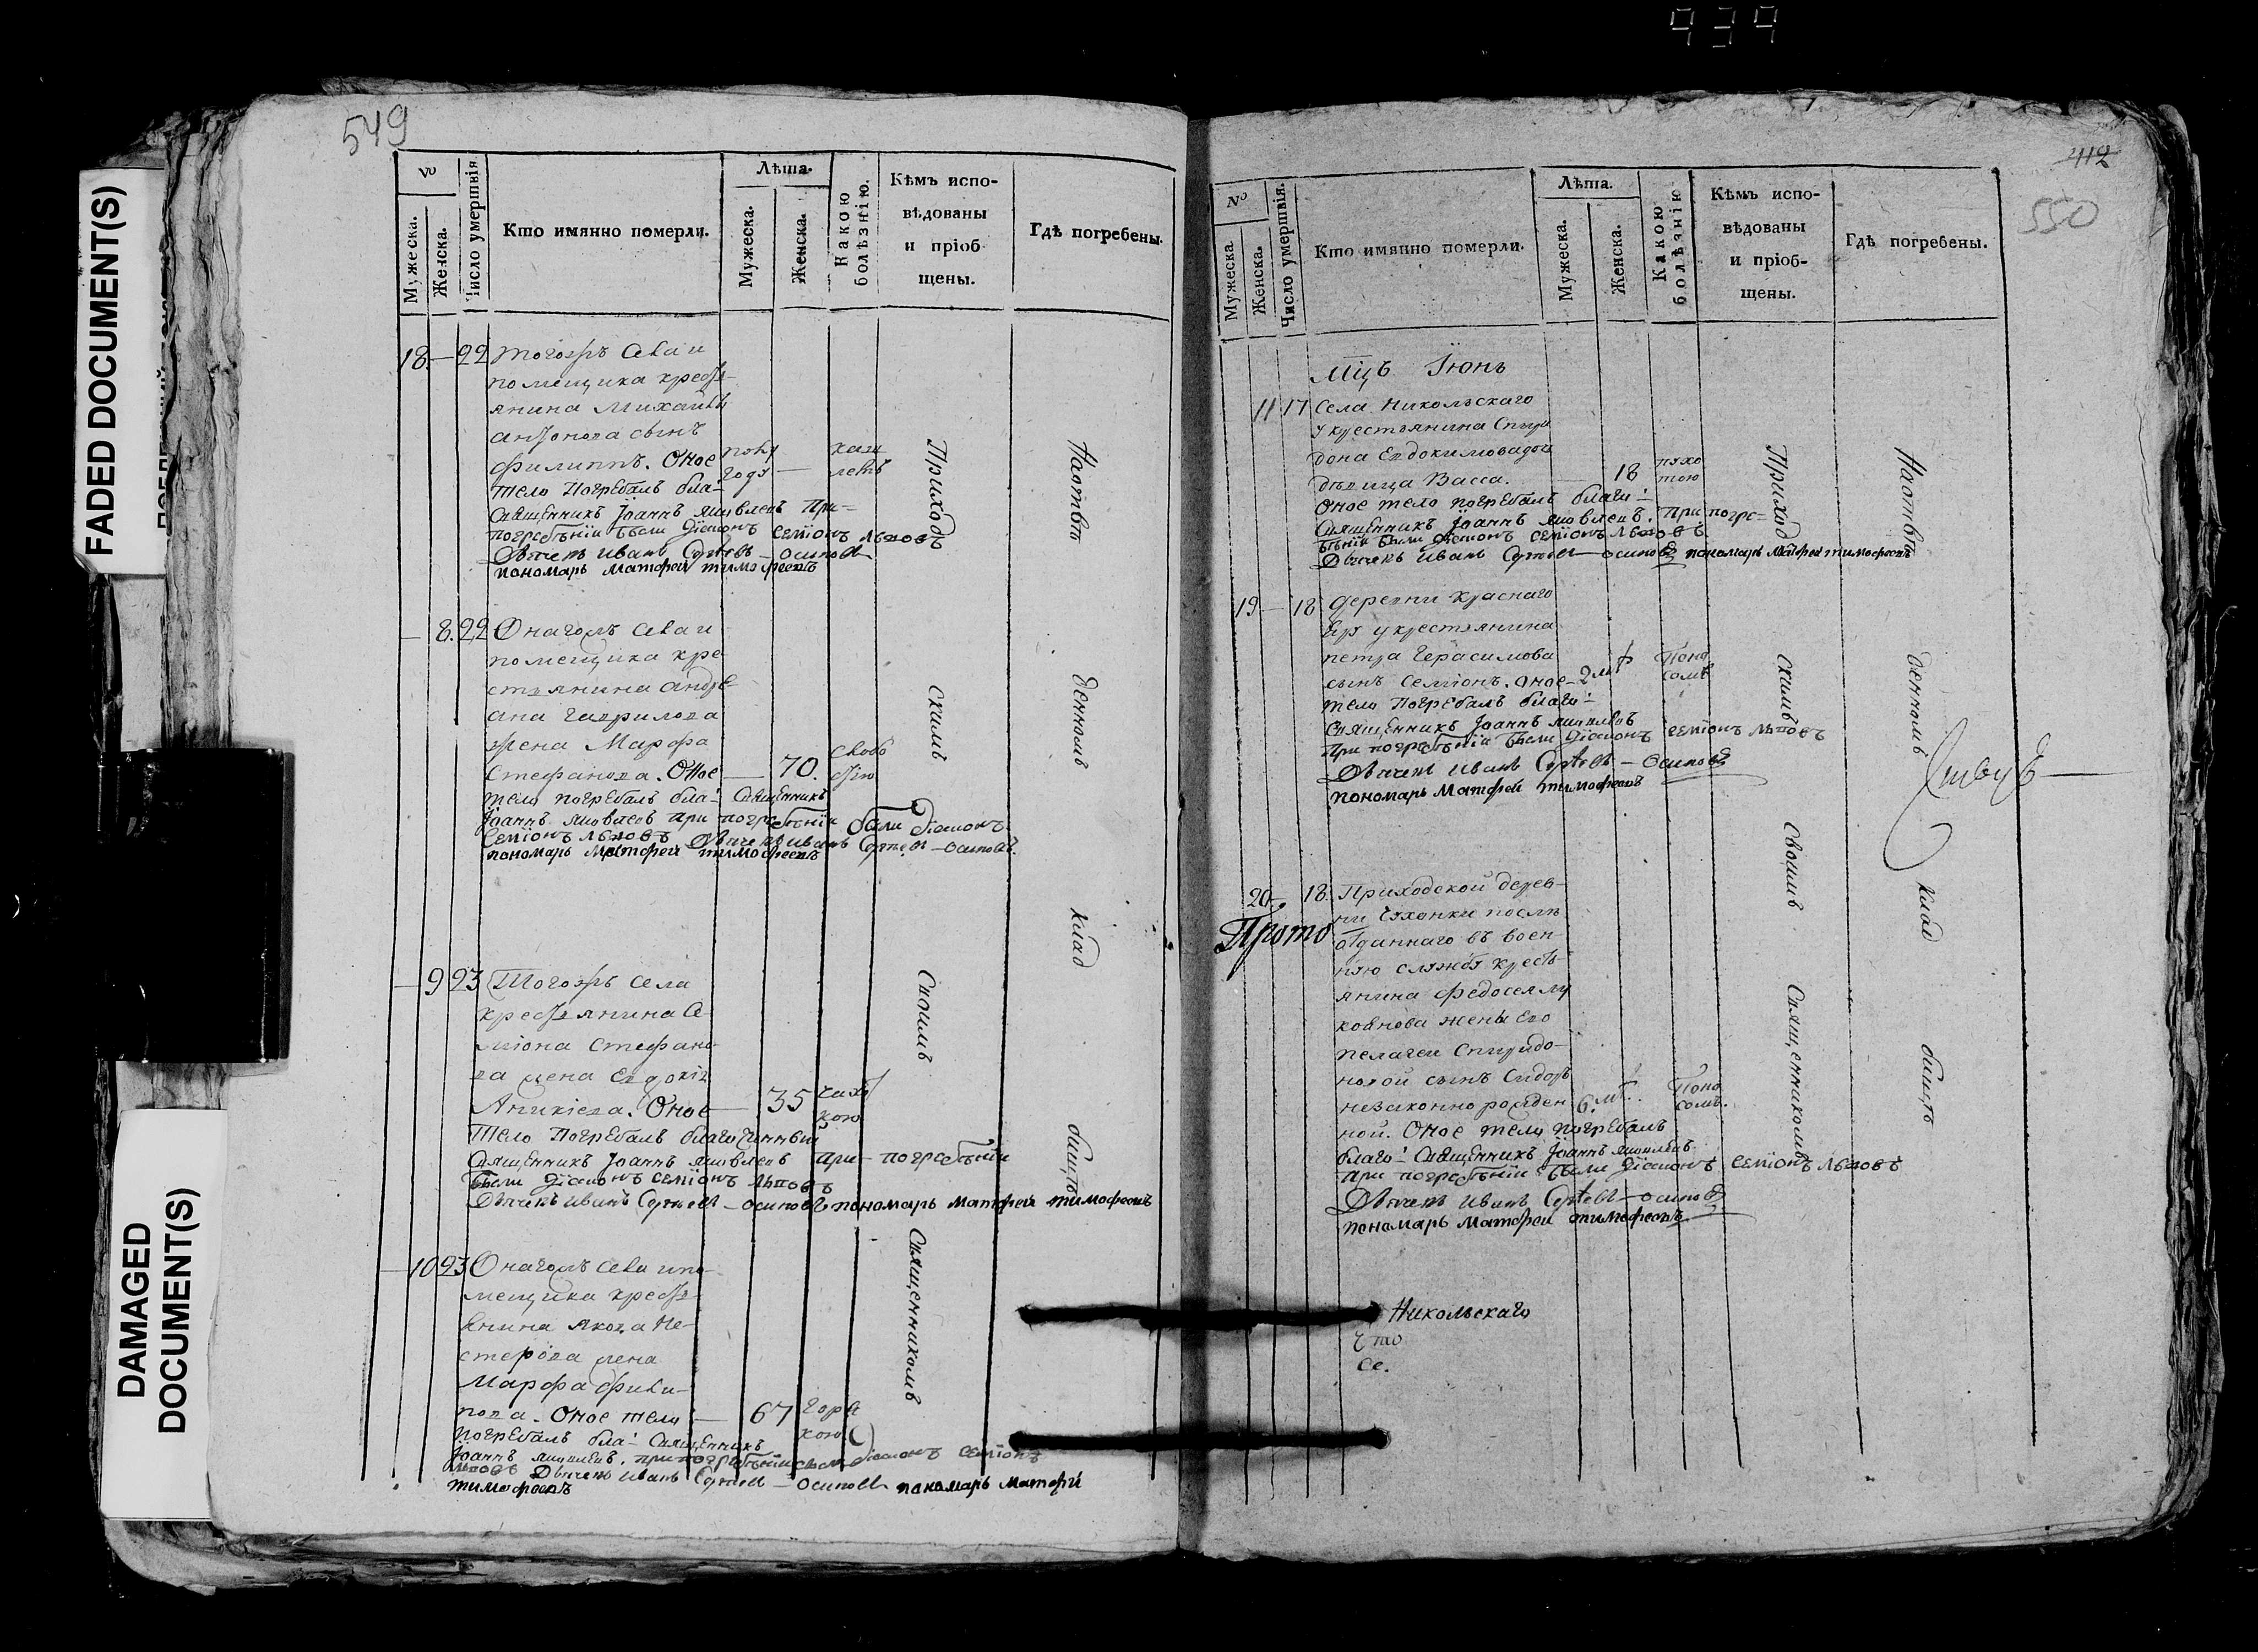 939
FADED DOCUMENT(S)
DAMAGED
DOCUMENT(S)
549
№
Мужеска.
Женска.
Число умершвія
Кто имянно померли.
Лѣта.
Мужеска.
Женска.
Какою
болѣзнію.
Кѣмъ испо-
вѣдованы
и пріоб
щены.
Гдѣ погребены.
18.—22 тогожъ села и
помещика крестъ-
янина Михаила
антонова сынъ
филиппъ. Оное полу года — каш лемъ
тело Погребалъ бла:
Священникъ Іоаннъ яковлевъ При=
погребѣніи были діаконъ семіонъ львовъ
Дьячекъ Иванъ Сергѣевъ — осиповъ
пономарь матфеи тимофеевъ
— 8. 22 Онагожъ села и
помещика кре
стьянина андре
ана гаврилова
жена Марфа
стефанова. Оное — 70.
тело погребалъ бла: Священникъ
Іоаннъ яковлевъ при погребѣніи были діаконъ
Семіонъ львовъ Дьячекъ иванъ Сергѣевъ — осиповъ.
пономарь Матфеи тимофеевъ
— 9 23 Тогожъ села
крестьянина Се
міона Стефано
ва жена Евдокія
Аникіева. Оное — 35 чахоткою
Тело Погребалъ благочинныи
Священникъ Іоаннъ яковлевъ при погребѣніи
были діаконъ семіонъ львовъ
Дьячекъ иванъ Сергѣевъ — осиповъ пономарь матфеи тимофеевъ
— 10 23 Онагожъ села и по
мещика кресть
янина Якова Не-
стерова жена
Марфа Фили-
пова. Оное тело — 67 горячкою
погребалъ бла: Священникъ
Іоаннъ яковлевъ. при погребѣніи были діаконъ семіонъ
львовъ Дьячекъ иванъ Сергѣевъ — осиповъ пономарь матфеи
тимофеевъ
Приходскимъ Своимъ Священникомъ
На отведенномъ кладбищѣ
412
550
№
Мужеска.
Женска.
Число умершвія.
Кто имянно померли.
Лѣта.
Мужеска.
Женска.
Какою
болѣзнію
Кѣмъ испо-
вѣдованы
и пріоб-
щены.
Гдѣ погребены.
мцъ Іюнь
11 17 Села Никольскаго
у крестьянина Спири
дона Евдокимова дочь
дѣвица Васса. — 18
Оное тело погребалъ благо:
Священникъ Іоаннъ яковлевъ. При погре=
бѣніи были діаконъ семіонъ львовъ
Дьячекъ иванъ Сергѣевъ — осиповъ пономарь матфеи тимофеевъ
19 — 18 деревни Краснаго
Яру у крестьянина
петра Герасимова
сынъ Семіонъ. оное — 2 мц поносомъ
тело Погребалъ благо:
Священникъ Іоаннъ яковлевъ
При погребѣніи были діаконъ семіонъ львовъ
Дьячекъ иванъ Сергѣевъ — осиповъ
пономарь Матфеи тимофеевъ
20 — 18. Приходской дерев-
ни Чухонки после
отданнаго въ воен-
ную службу кресть
янина Федосея лу
коянова жены Его
пелагеи Спиридо-
новой сынъ Сидоръ
незаконнорожден 6. мц. поносомъ.
ной. Оное тело погребалъ
благо: Священникъ Іоаннъ яковлевъ
при погребѣніи были діаконъ семіонъ львовъ
Дьячекъ иванъ Сергѣевъ — осиповъ
пономарь матфеи тимофеевъ
Прото
Приходскимъ Своимъ Священникомъ
На отведенномъ кладбищѣ
Никольскаго
что
се.